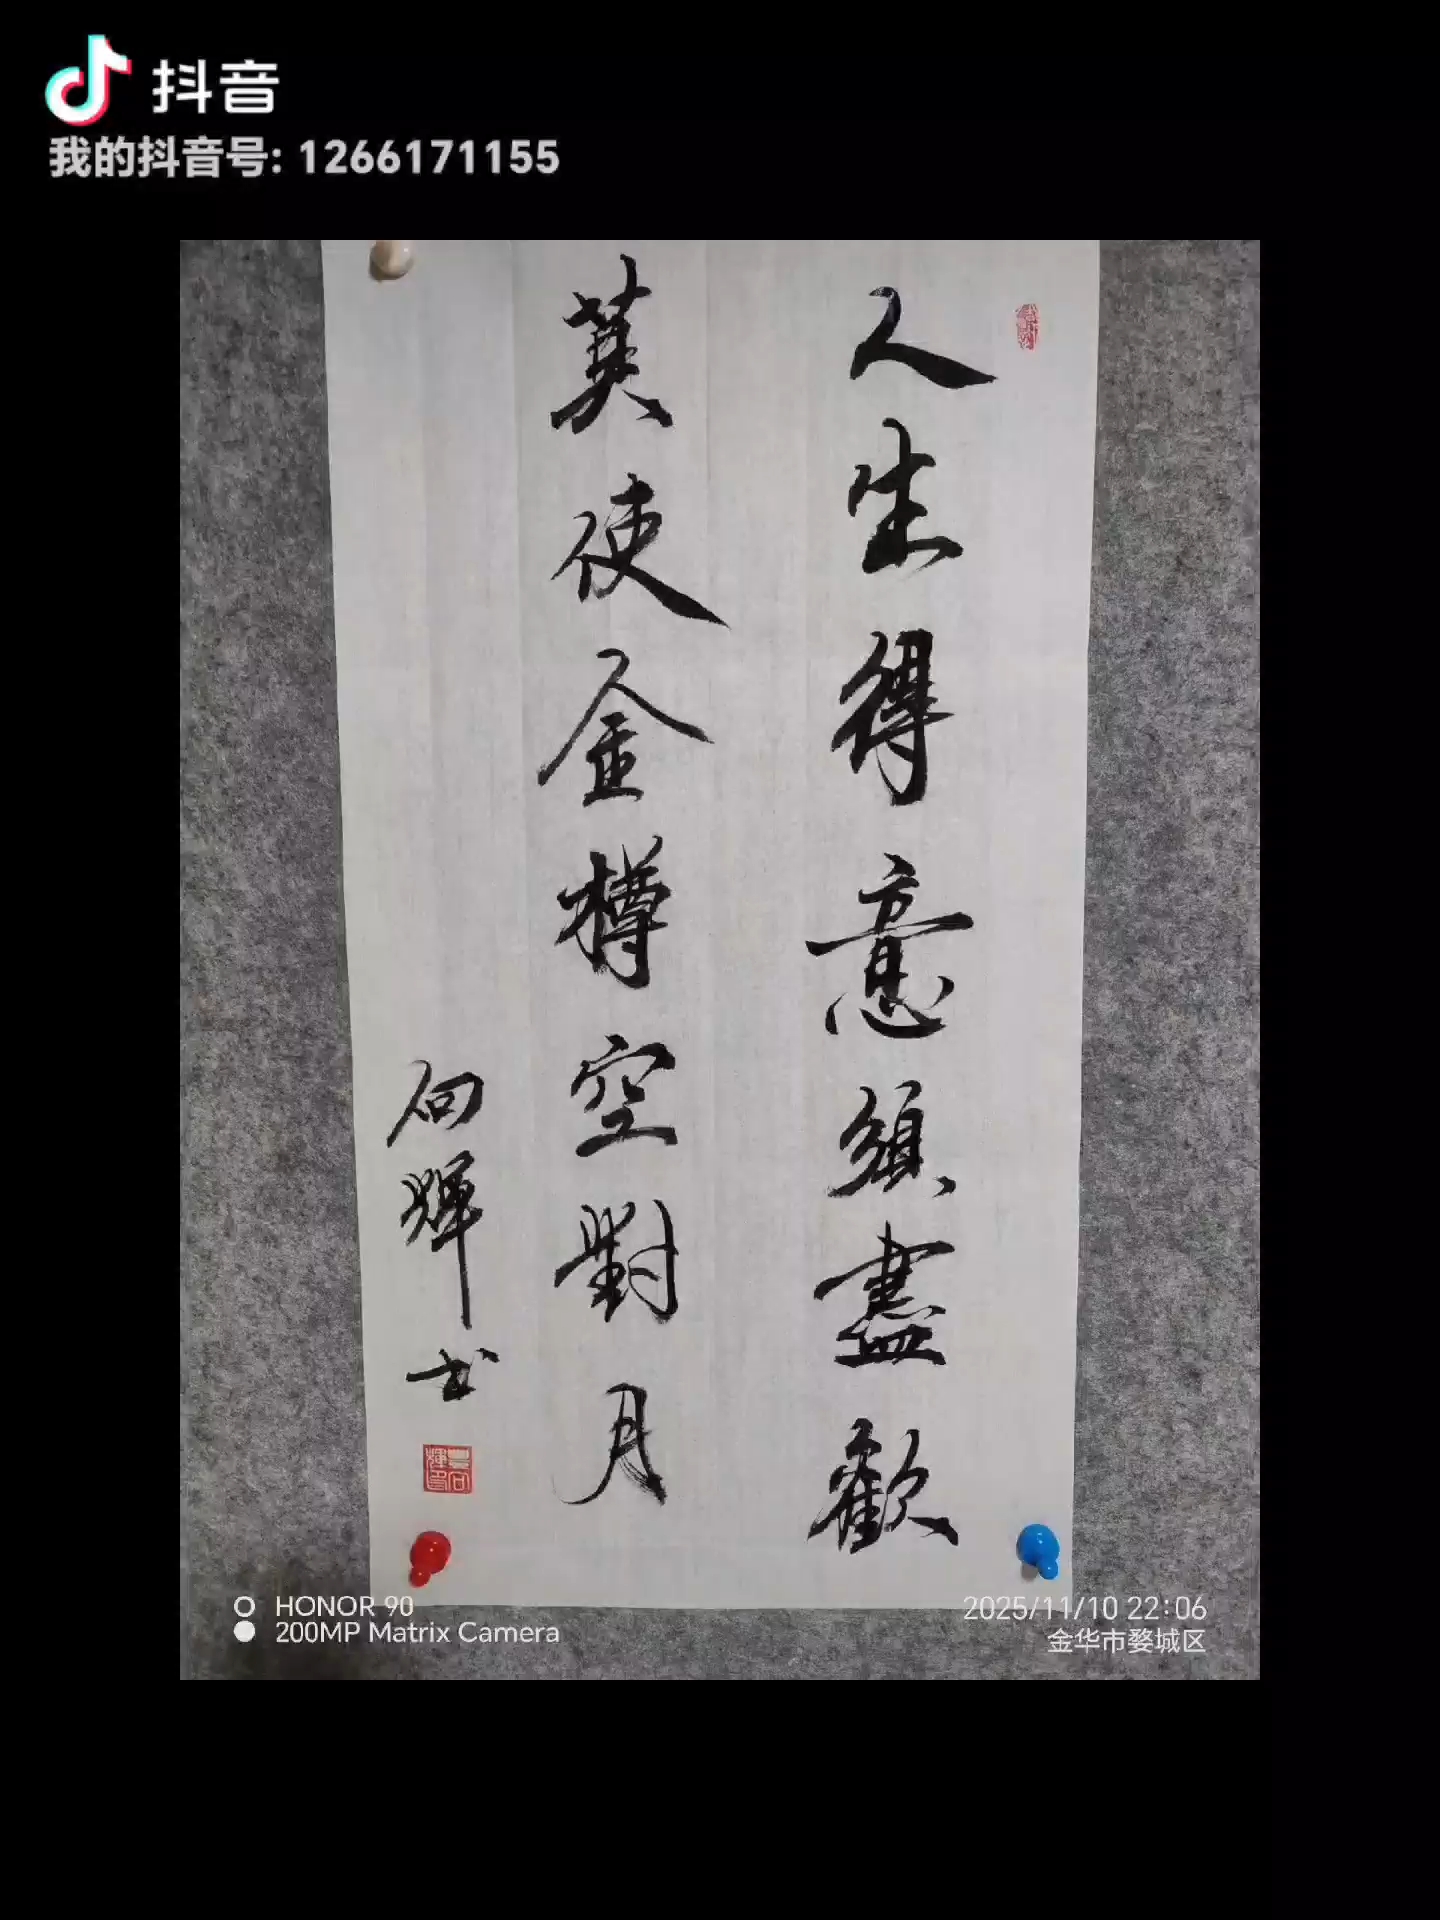 抖音
我的抖音号: 1266171155
人生得意須盡歡
莫使金樽空對月
向輝书
HONOR 90
200MP Matrix Camera
2025/11/10 22:06
金华市婺城区